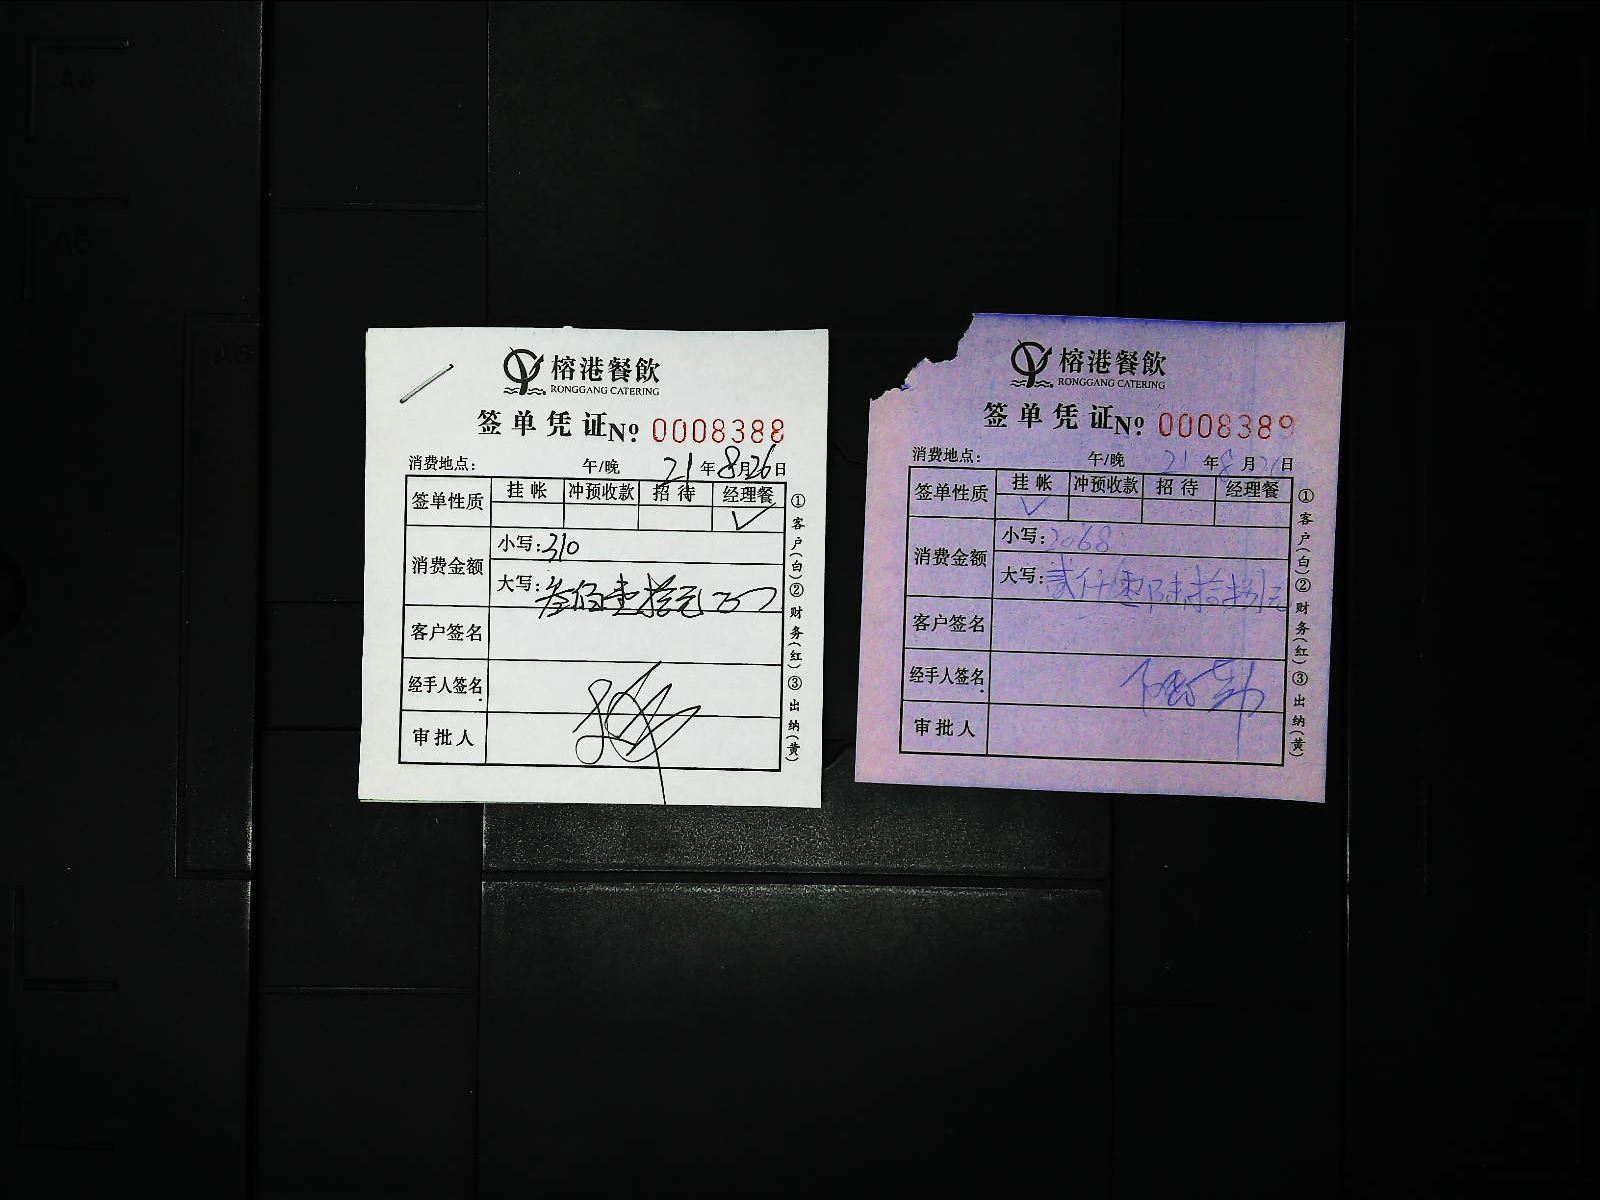 榕港餐飲
RONGGANG CATERING
签单凭证 No: 0008388
消费地点: 午/晚 21年8月26日
签单性质 挂帐 冲预收款 招待 经理餐
✓
消费金额 小写: 310
大写: 叁佰壹拾元正
客户签名
经手人签名
审批人
①客户(白)②财务(红)③出纳(黄)
榕港餐飲
RONGGANG CATERING
签单凭证 No: 0008389
消费地点: 午/晚 21年8月 日
签单性质 挂帐 冲预收款 招待 经理餐
✓
消费金额 小写: 2068
大写: 贰仟零陆拾捌元
客户签名
经手人签名
审批人
①客户(白)②财务(红)③出纳(黄)